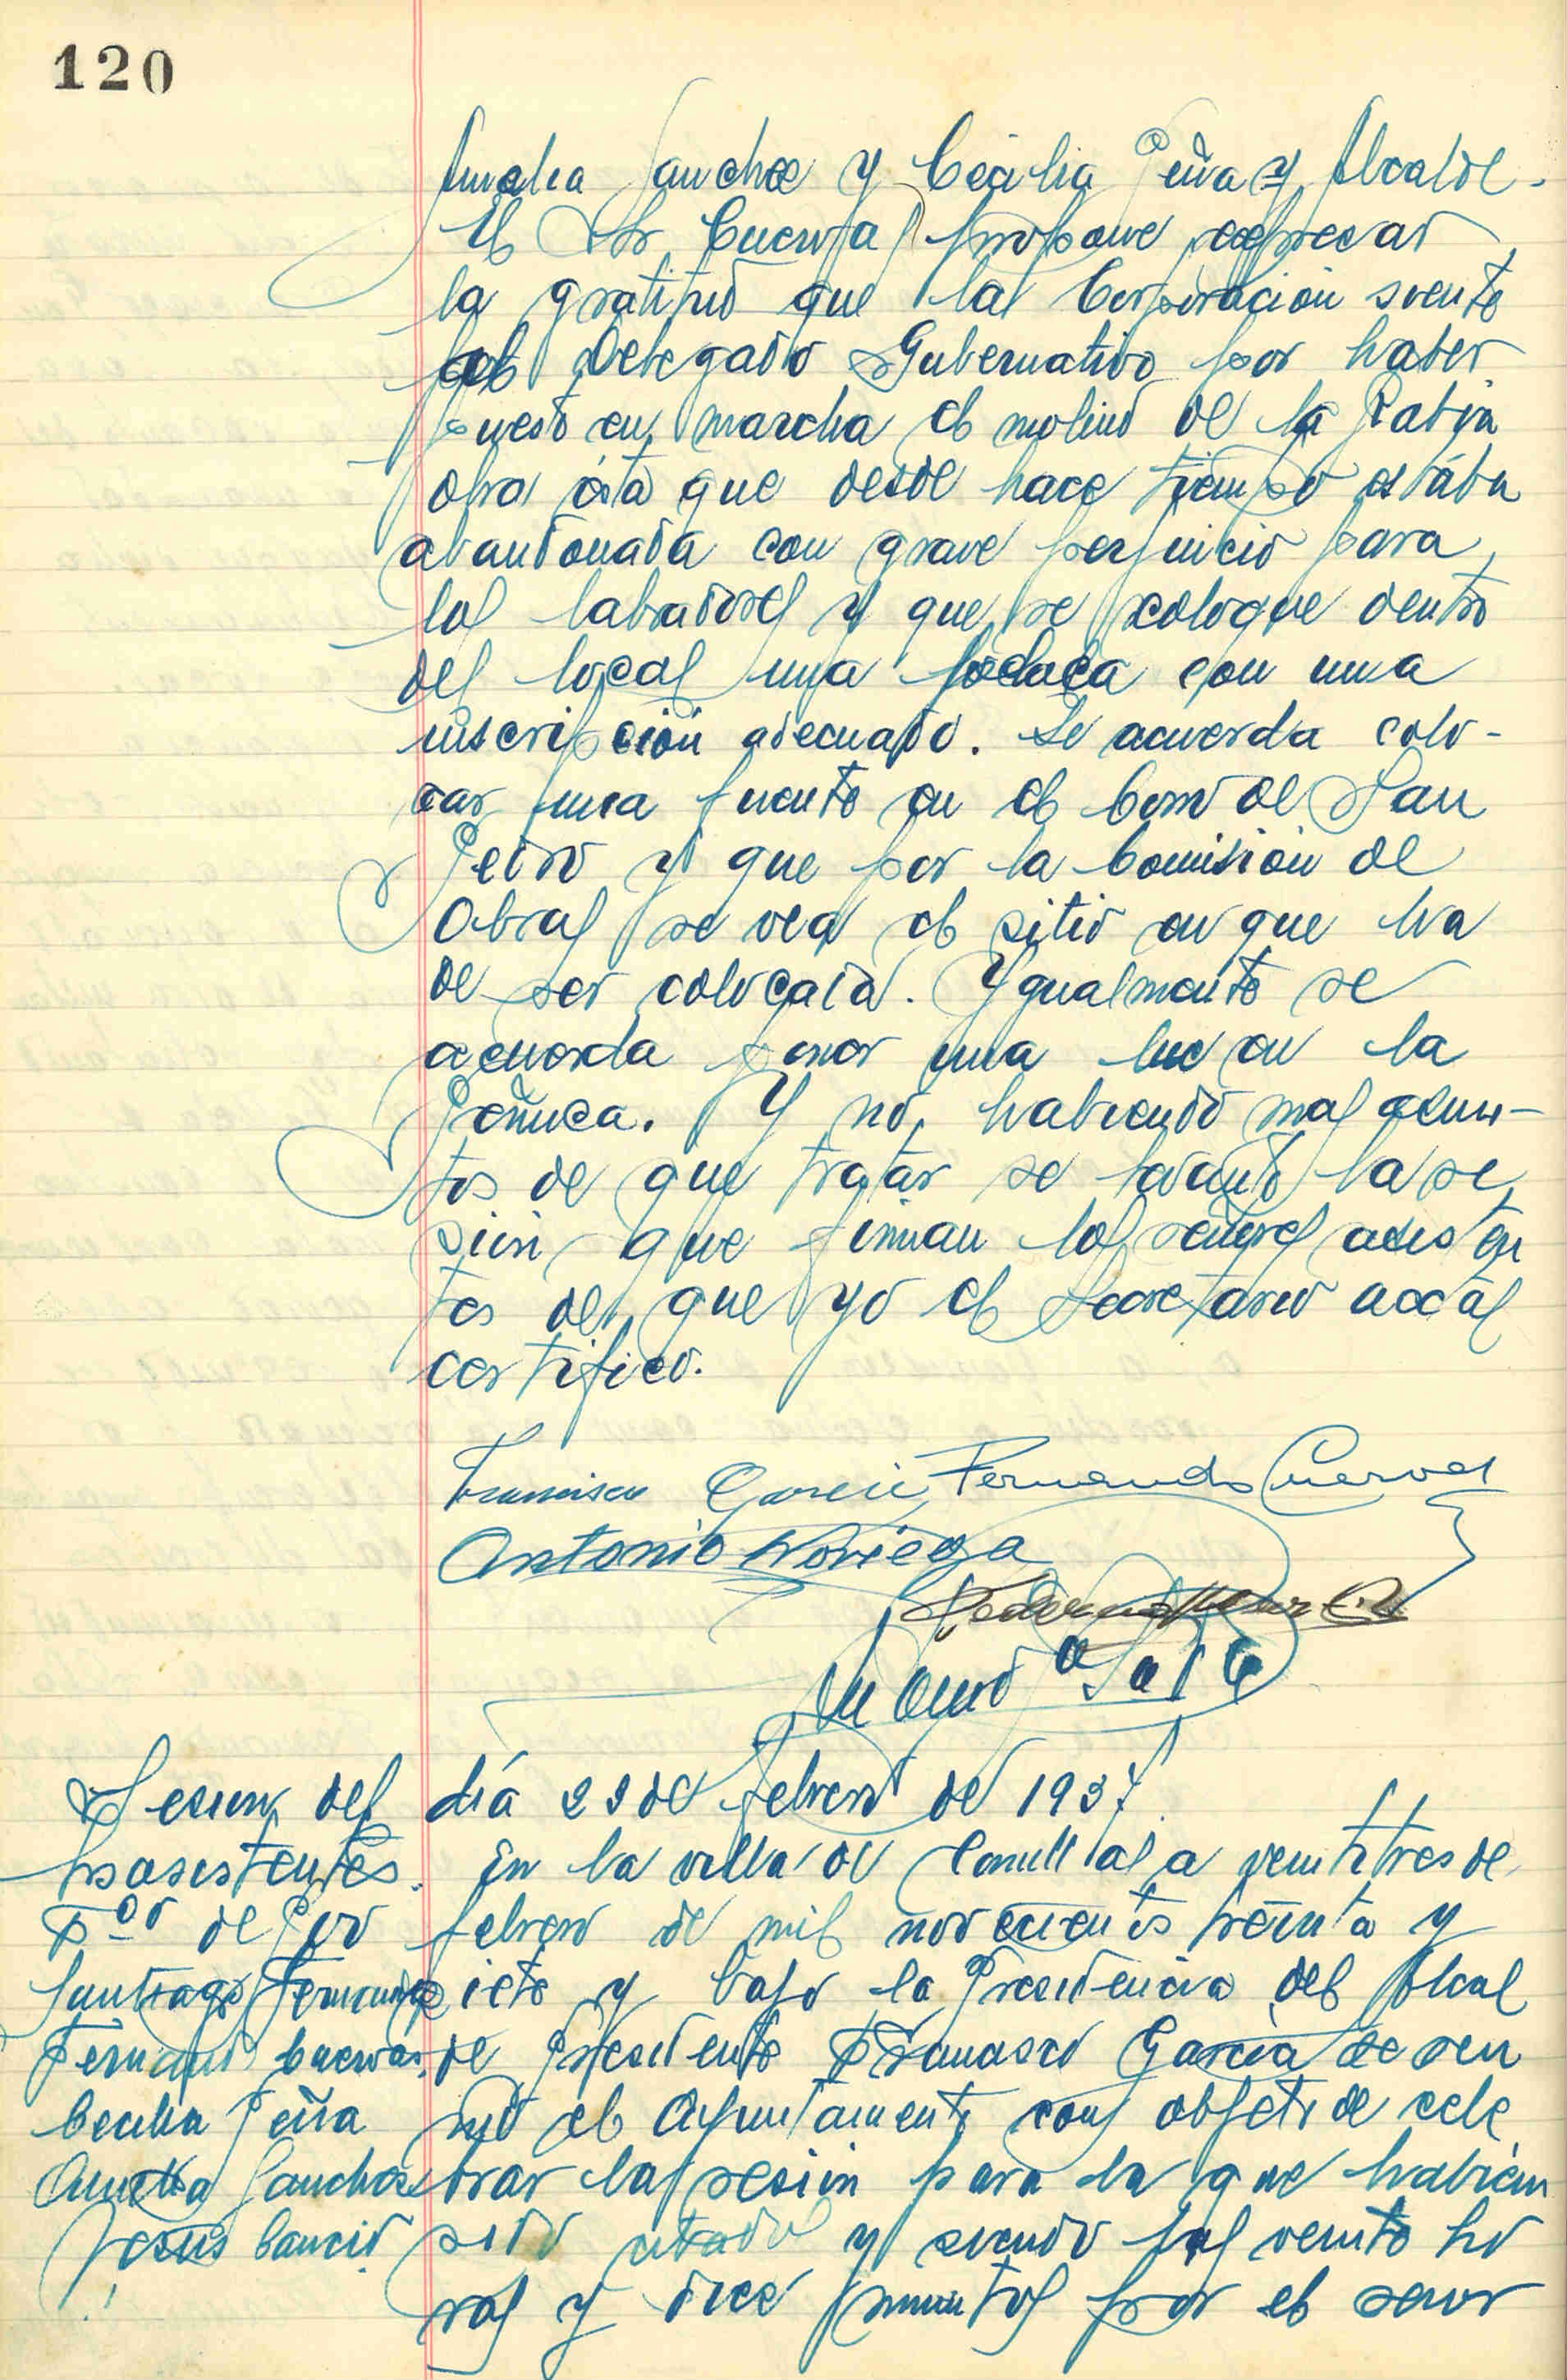 120
Amalia Sanchez y Cecilia Peña y Alcalde.
El Sr Cuervas propone expresar
la gratitud que la Corporación siente
al Delegado Gubernativo por haber
puesto en marcha el molino de la Rabia
obra ésta que desde hace tiempo estaba
abandonada con grave perjuicio para
los labradores y que se coloque dentro
del local una placa con una
inscripción adecuado. Se acuerda colo-
car una fuente en el Corro de San
Pedro y que por la Comisión de
Obras se vea el sitio en que ha
de ser colocada. Ygualmente se
acuerda poner una luz en la
Peñuca. Y no habiendo mas asun-
tos de que tratar se levantó la se
sion que firman los señores asisten
tes de que yo el Secretario accal
certifico.
Francisco Garcia Fernando Cuervas
Antonio Noriega
Sesion del día 23 de febrero de 1937
asistentes. En la villa de Comillas a veintitres de
febrero de mil novecientos treinta y
Santiago Fernandez siete y bajo la Presidencia del Alcal
Fernando Cuervas. de Presidente Francisco García se reu
Cecilia Peña nió el Ayuntamiento con objeto de cele
Amalia Sanchez brar la sesion para la que habian
Jesus Cancio sido citados y siendo las veinte ho
ras y doce minutos por el señor